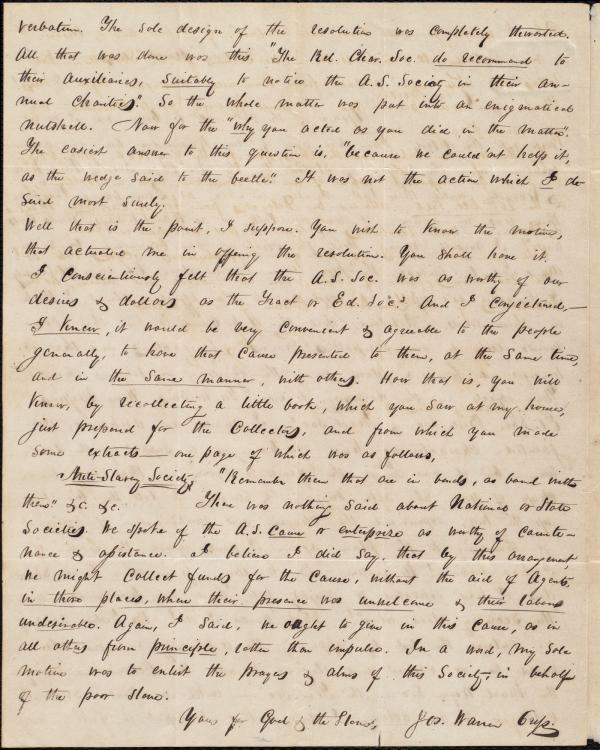 verbatim. The sole design of the resolution was completely thwarted.
All that was done was this "The Rel. Char. Soc. do recommend to
their auxiliaries, suitably to notice the A.S. Society in their an-
nual charities." So the whole matter was put into an enigmatical
nutshell. Now for the "why you acted as you did in the matter".
The easiest answer to this question is, "because we could'nt help it,
as the wedge said to the beetle." It was not the action which I de-
sired most surely.
Well that is the point, I suppose. You wish to know the motive,
that actuated me in offering the resolution. You shall have it.
I conscientiously felt that the A.S. Soc. was as worthy of our
desires & dollars as the Tract or Ed. Soc.s And I conjectured,—
I knew, it would be very convenient & agreeable to the people
generally, to have that cause presented to them, at the same time,
and in the same manner, with others. How that is, you will
know, by recollecting a little book, which you saw at my house,
just prepared for the Collectors, and from which you made
some extracts — one page of which was as follows,
Anti-Slavery Society. "Remember them that are in bonds, as bound with
them" &c. &c. There was nothing said about National or State
Societies. We spoke of the A.S. Cause or enterprize as worthy of counte-
nance & assistance. I believe I did say, that by this arrangement,
we might collect funds for the cause, without the aid of Agents,
in those places, where their presence was unwelcome & their labors
undesirable. Again, I said, we ought to give in this cause, as in
all others from principle, rather than impulse. In a word, my sole
motive was to enlist the prayers & alms of this Society, in behalf
of the poor slave.
Yours for God & the Slave, Jos. Warren Cross.